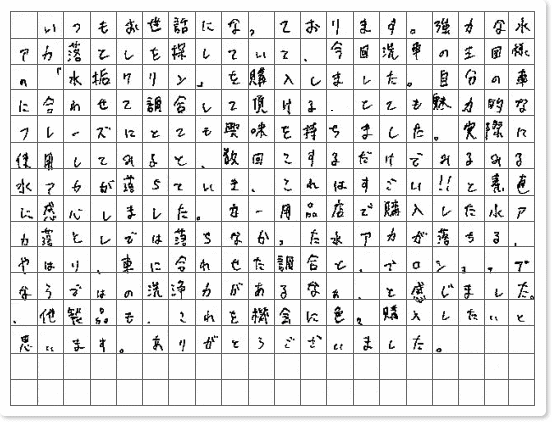 いつもお世話になっております。強力な水
アカ落としを探していて、今回洗車の王国様
の「水垢クリン」を購入しました。自分の車
に合わせて調合して頂ける、とても魅力的な
フレーズにとても興味を持ちました。実際に
使用してみると、数回こするだけでみるみる
水アカが落ちていき、これはすごい!!と素直
に感心しました。カー用品店で購入した水ア
カ落としでは落ちなかった水アカが落ちる、
やはり、車に合わせた調合と、プロショップ
ならではの洗浄力があるなぁ、と感じました。
、他製品も、これを機会に色々購入したいと
思います。ありがとうございました。